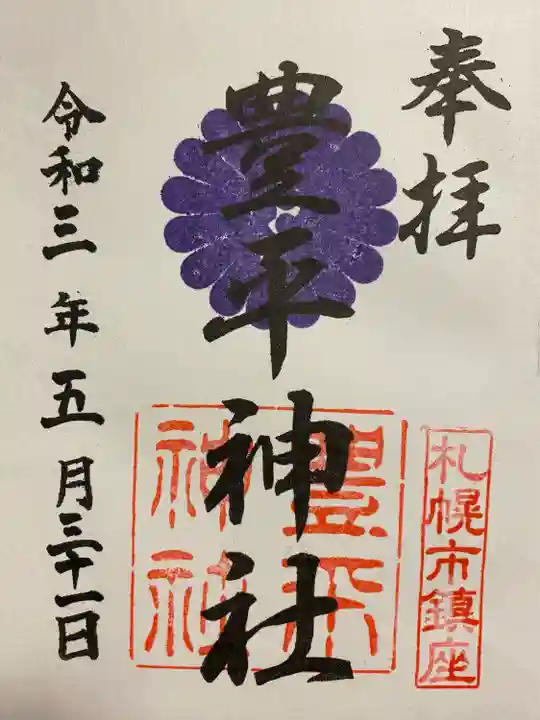 奉拝
札幌市鎮座
豊平神社
豊平神社
令和三年五月三十一日